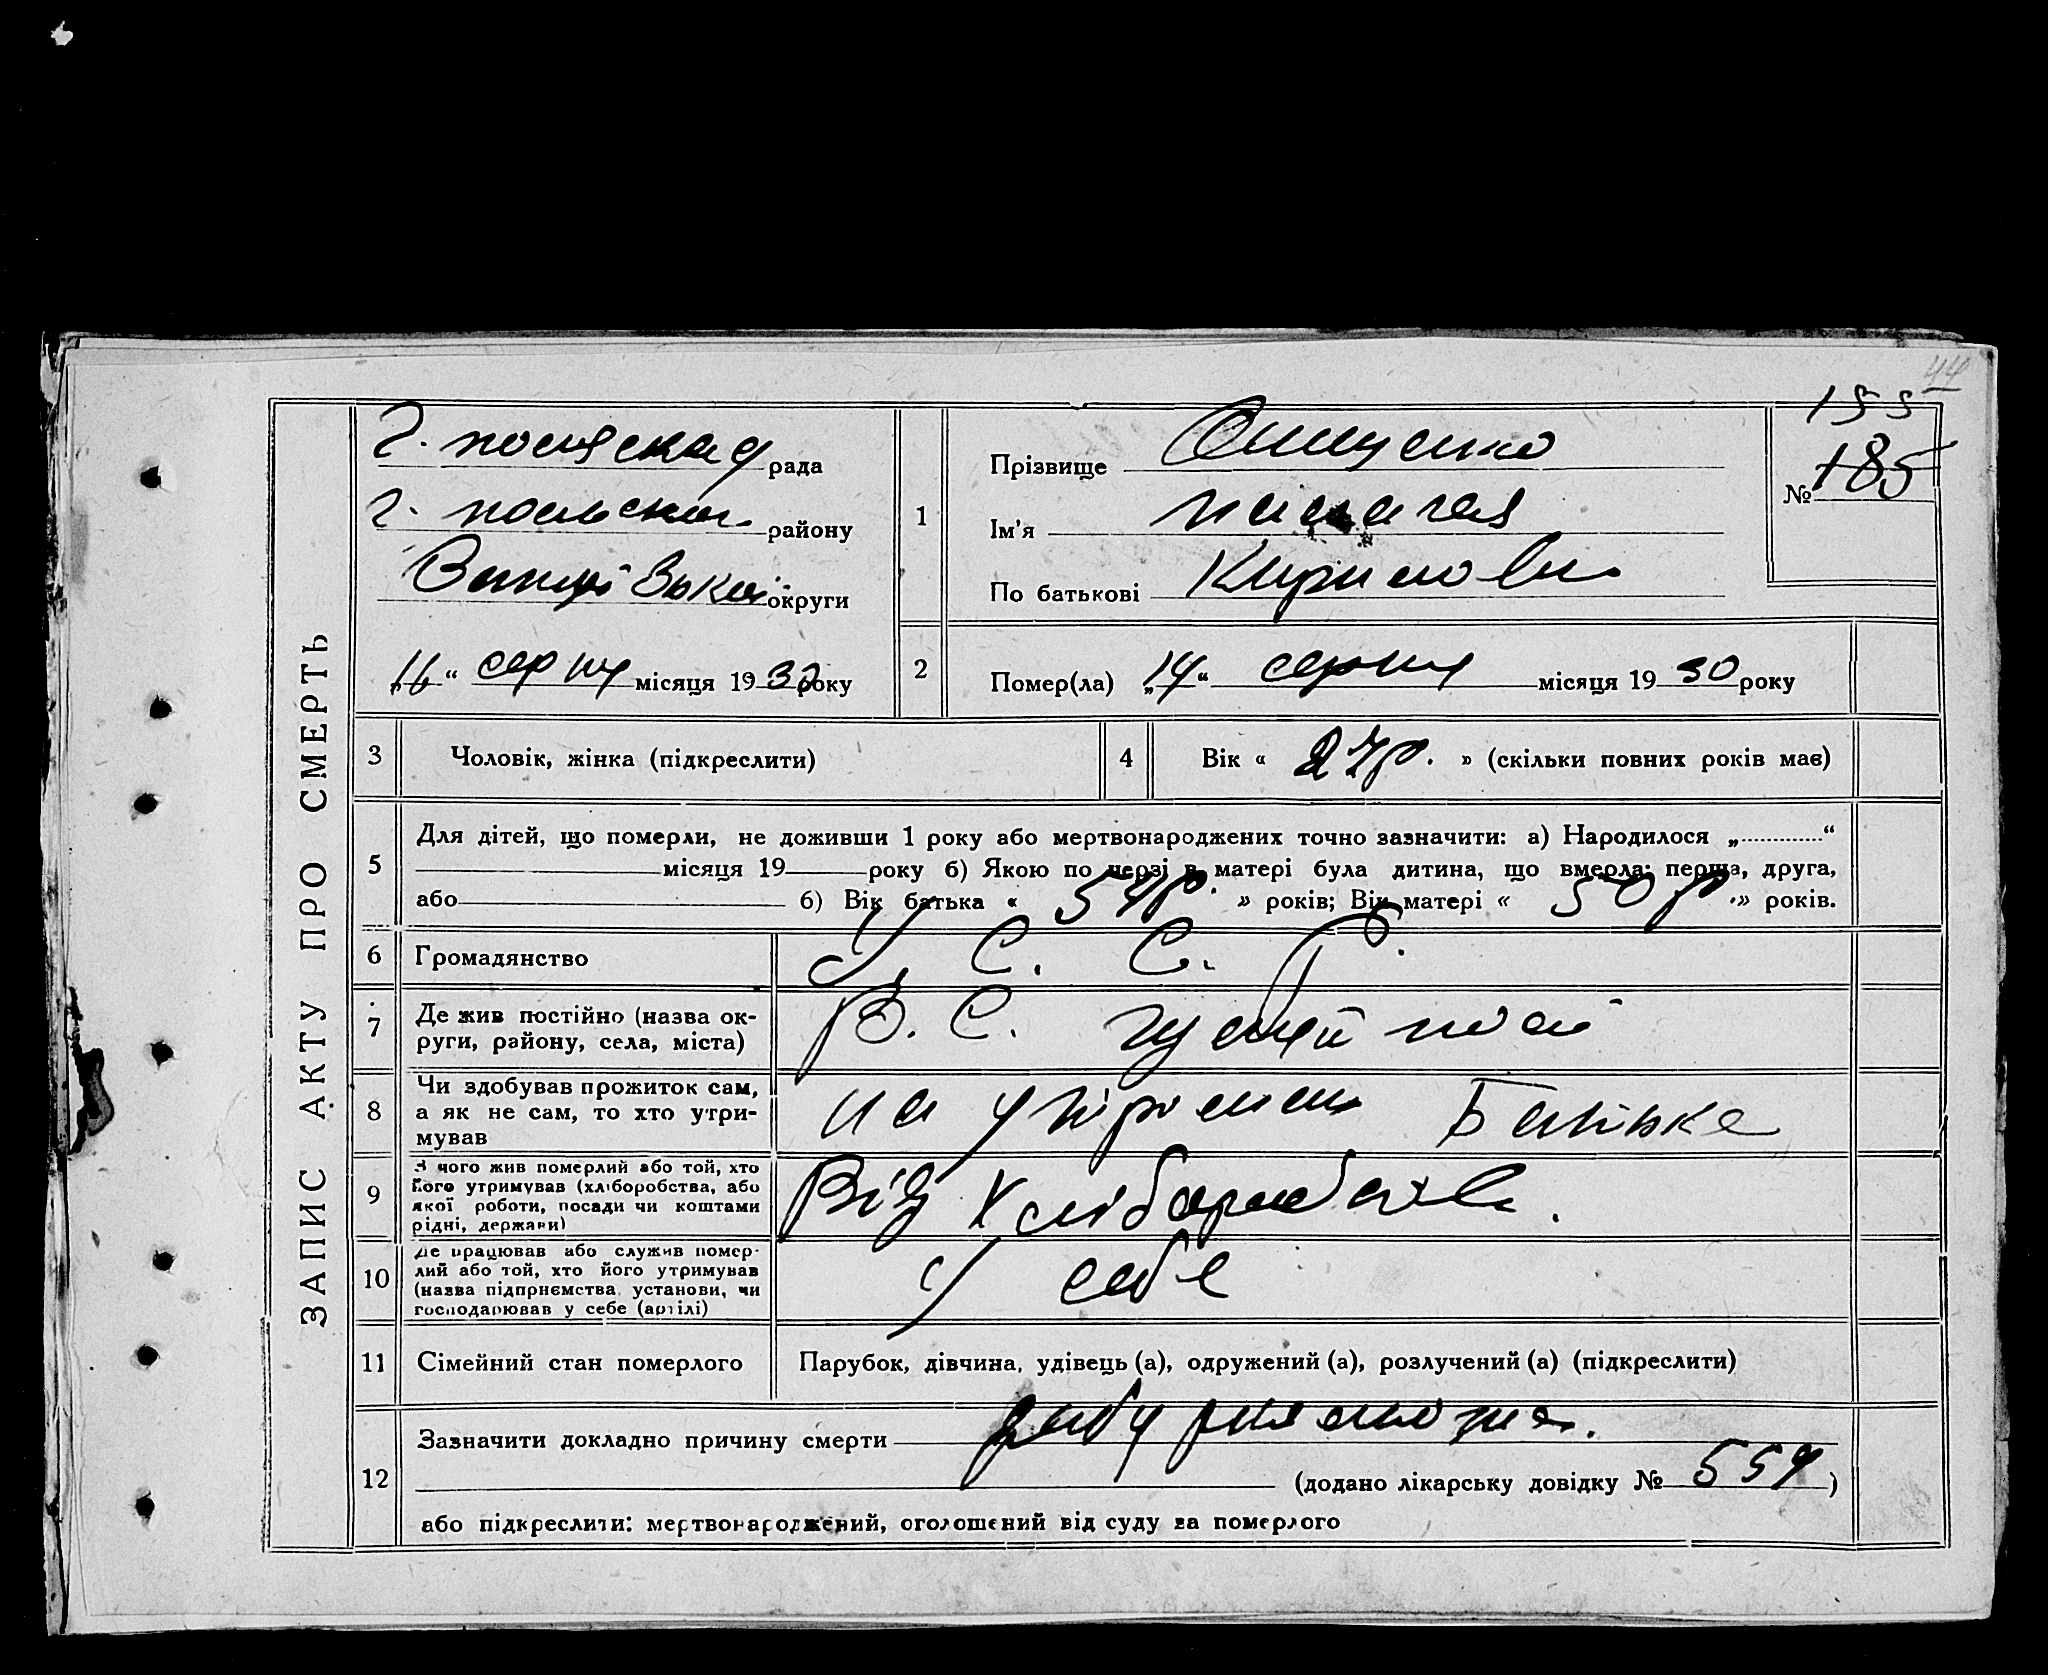 44
155
185
№
Г. польска рада
Г. польськ. району
Запорізької округи
„16“ серпня місяця 1930 року
ЗАПИС АКТУ ПРО СМЕРТЬ
1
Прізвище Онищенко
Ім'я
По батькові Кирилов
2
Помер(ла) „14“ серпня місяця 1930 року
3 Чоловік, жінка (підкреслити)
4 Вік « 27 р. » (скільки повних років має)
5 Для дітей, що померли, не доживши 1 року або мертвонароджених точно зазначити: а) Народилося „ “
місяця 19 року б) Якою по черзі в матері була дитина, що вмерла: перша, друга,
або б) Вік батька « р. » років; Вік матері « 50 р. » років.
6 Громадянство У. С. С. Р.
7 Де жив постійно (назва ок-
руги, району, села, міста)
В. С. Гуляй поле
8 Чи здобував прожиток сам,
а як не сам, то хто утри-
мував
на утрімані Батька
9 З чого жив померлий або той, хто
його утримував (хліборобства, або
якої роботи, посади чи коштами
рідні, держави)
Від Хліборобства.
10 Де працював або служив помер-
лий або той, хто його утримував
(назва підприємства, установи, чи
господарював у себе (артілі)
У себе
11 Сімейний стан померлого Парубок, дівчина, удівець (а), одружений (а), розлучений (а) (підкреслити)
12 Зазначити докладно причину смерти
(додано лікарську довідку № 559)
або підкреслити: мертвонароджений, оголошений від суду за померлого